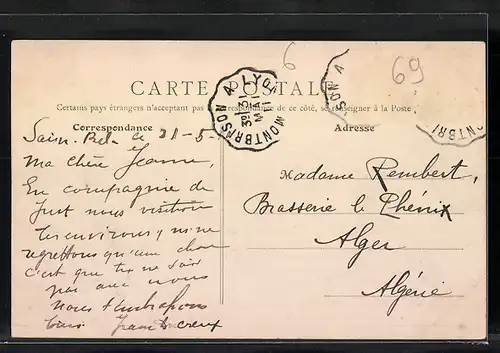 6
69
CARTE POSTALE
Certains pays étrangers n'acceptant pas de correspondance de ce côté, se renseigner à la Poste
MONTBRISON A LYON
31 MAI 11
SON A
MONTBRI
Correspondance
Adresse
Sain-Bel le 31-5-
Ma chère Jeanne,
En compagnie de
Just nous visitons
les environs, je ne
regrettons qu'une chose
c'est que tu ne sois
pas avec nous
nous t'embrassons
tous
Madame Rembert,
Brasserie le Phénix
Alger
Algérie